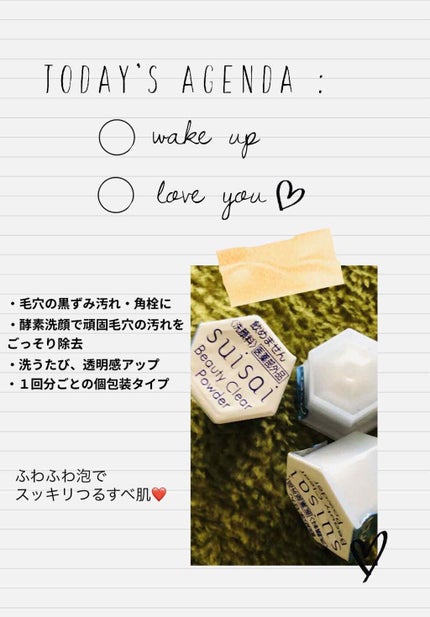 TODAY'S AGENDA :
wake up
love you
・毛穴の黒ずみ汚れ・角栓に
・酵素洗顔で頑固毛穴の汚れを
ごっそり除去
・洗うたび、透明感アップ
・１回分ごとの個包装タイプ
飲めません
(洗顔料)医薬部外品
suisai
Beauty Clear
Powder
suisai
Beauty Clear
Powder
ふわふわ泡で
スッキリつるすべ肌❤️